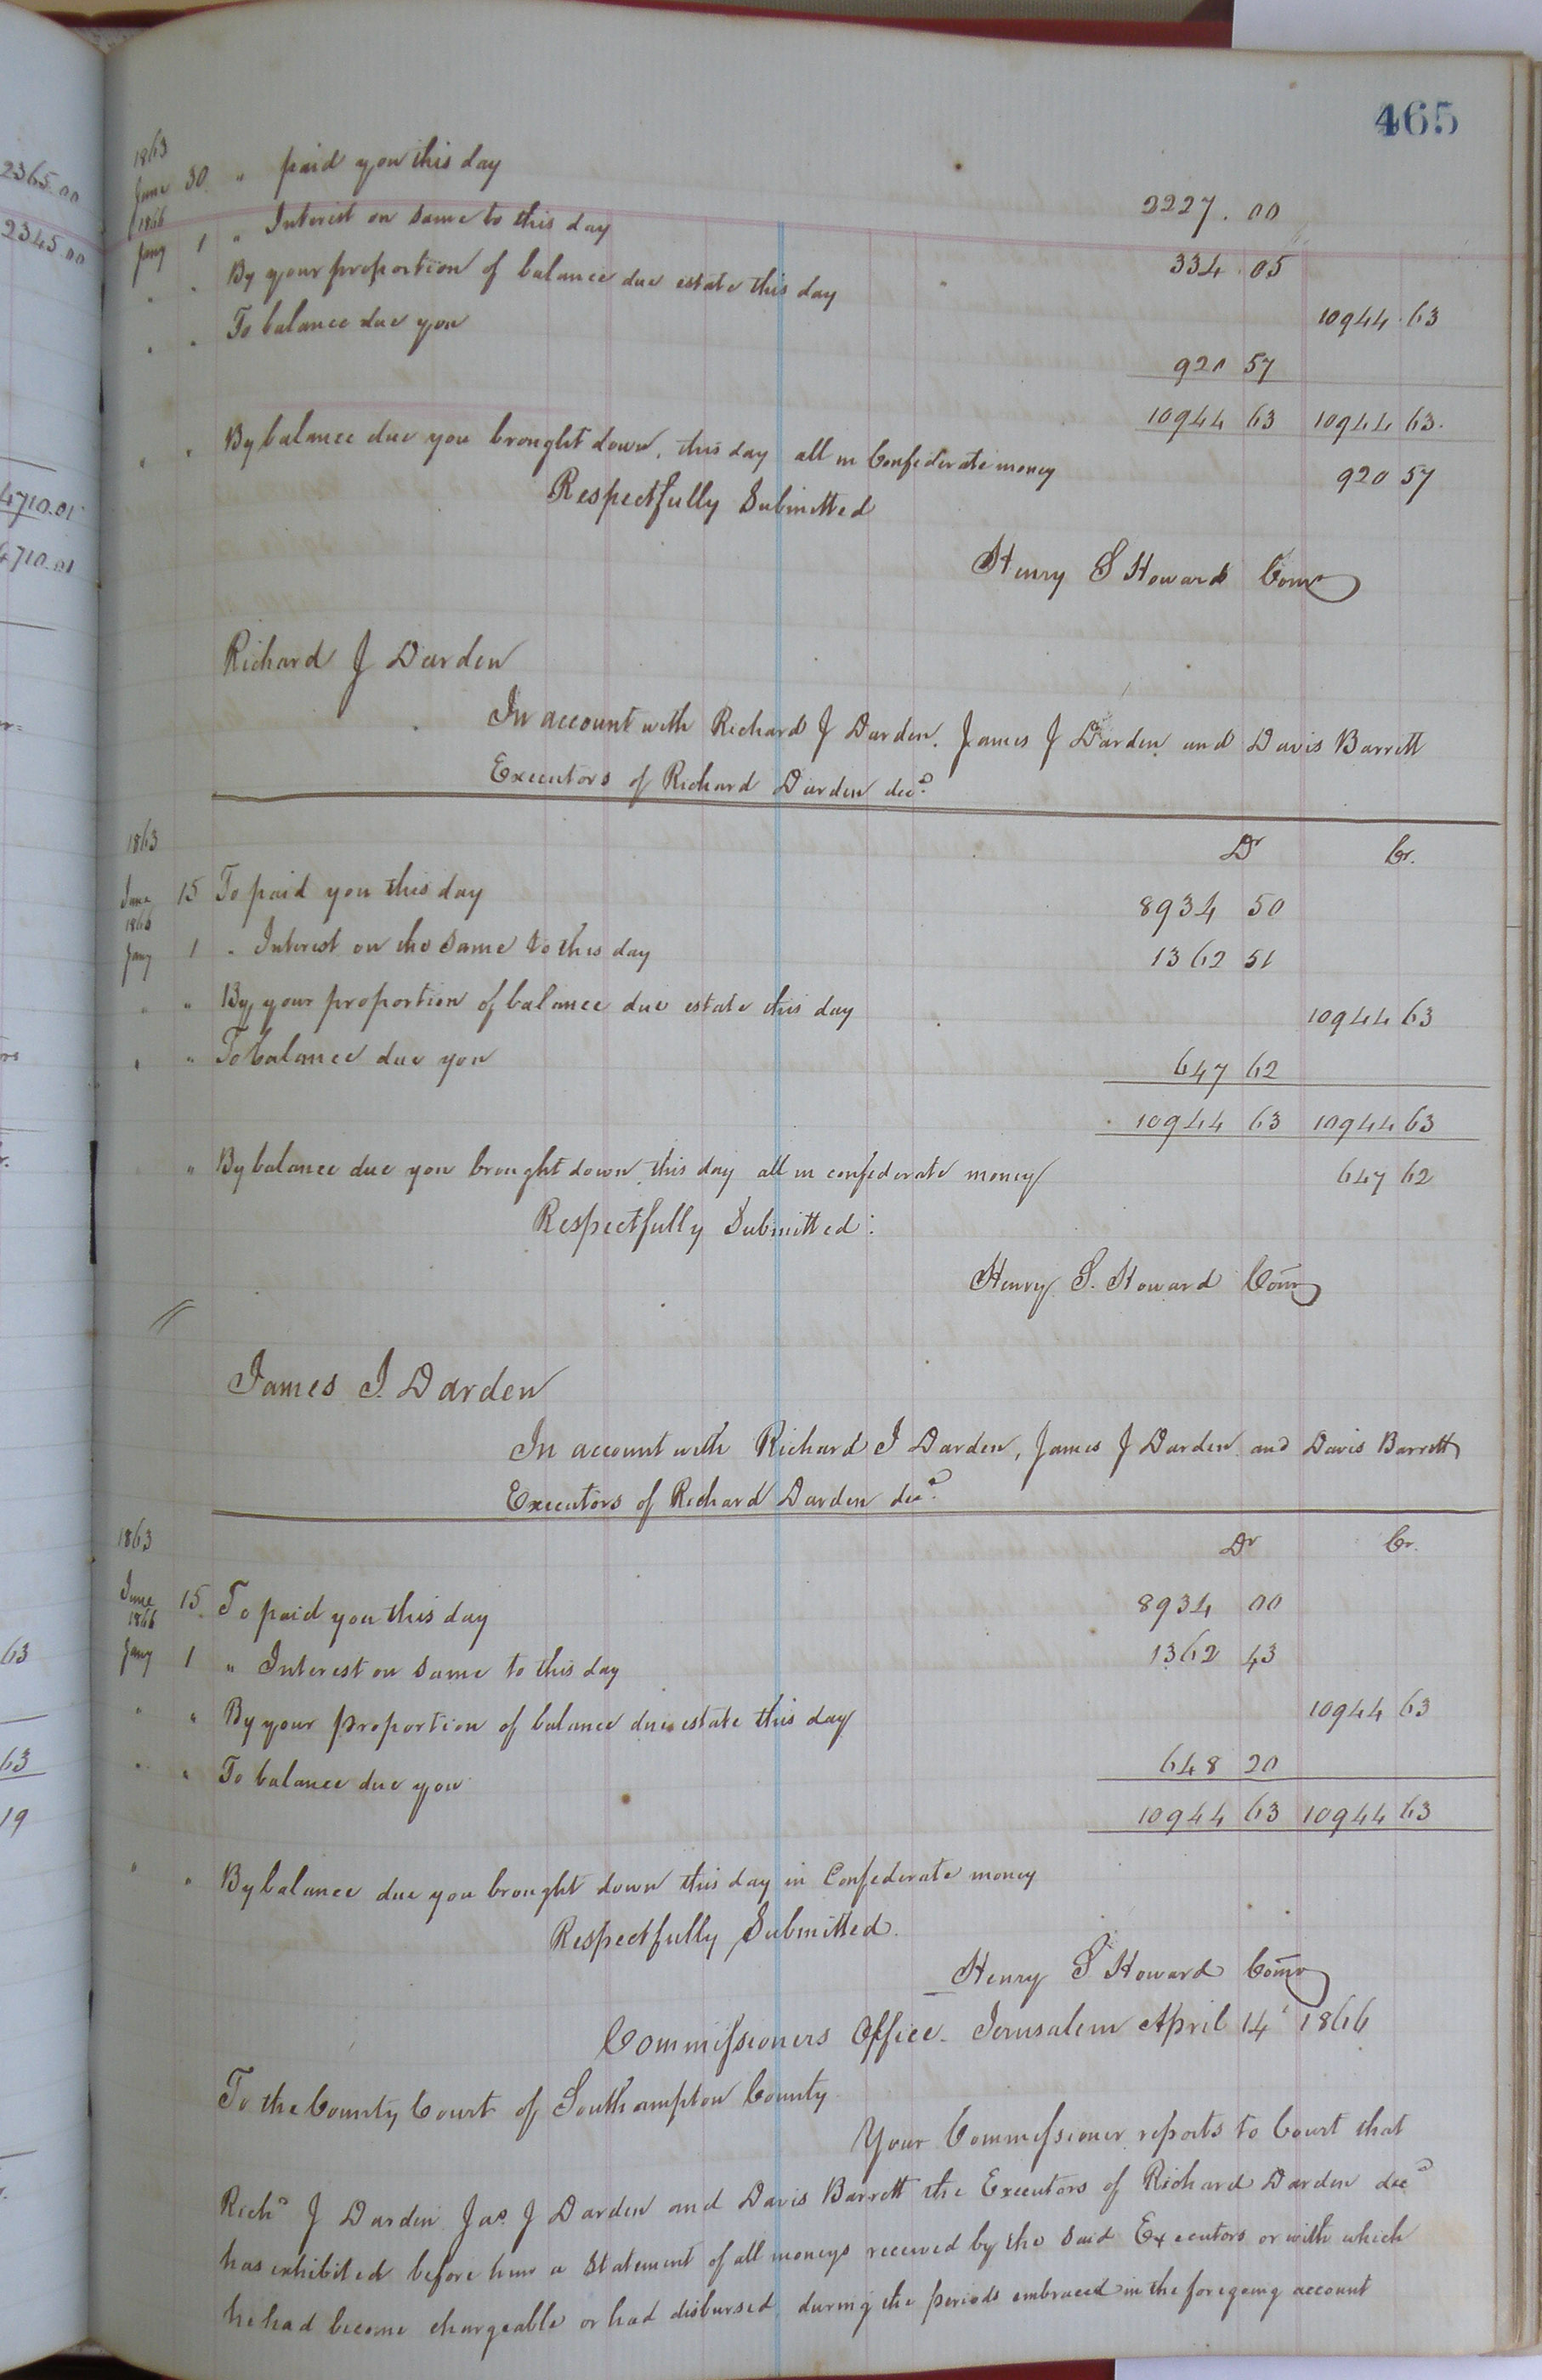 465
2365.00
2345.00
4710.01
4710.01
63
63
19
1863
June 30 " paid you this day 2227.00
1866
Jany 1 " Interest on same to this day 334.05
" " By your proportion of balance due estate this day 10944.63
" " To balance due you 920 57
10944 63 10944 63.
" " By balance due you brought down, this day all in Confederate money 920 57
Respectfully Submitted
Henry S Howard Comr
Richard J Darden
In account with Richard J Darden, James J Darden and Davis Barrett
Executors of Richard Darden decd.
1863 Dr Cr.
June 15 To paid you this day 8934 50
1866
Jany 1 " Interest on the same to this day 1362 51
" " By your proportion of balance due estate this day 10944 63
" " To balance due you 647 62
10944 63 10944 63
" By balance due you brought down, this day all in confederate money 647 62
Respectfully Submitted:
Henry S. Howard Comr
James J. Darden
In account with Richard J Darden, James J Darden and Davis Barrett
Executors of Richard Darden decd.
1863 Dr Cr.
June 15. To paid you this day 8934 00
1866
Jany 1 " Interest on same to this day 1362 43
" " By your proportion of balance due estate this day 10944 63
" " To balance due you 648 20
10944 63 10944 63
" " By balance due you brought down this day in Confederate money
Respectfully Submitted.
Henry S Howard Comr
Commissioners Office. Jerusalem April 14' 1866
To the County Court of Southampton County
Your Commissioner reports to Court that
Richd J Darden Jas. J Darden and Davis Barrett the Executors of Richard Darden decd
has exhibited before him a Statement of all moneys received by the said Executors or with which
he had become chargeable or had disbursed, during the periods embraced in the foregoing account